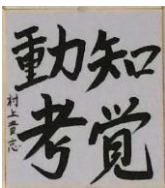 知覚
動考
村上貢志